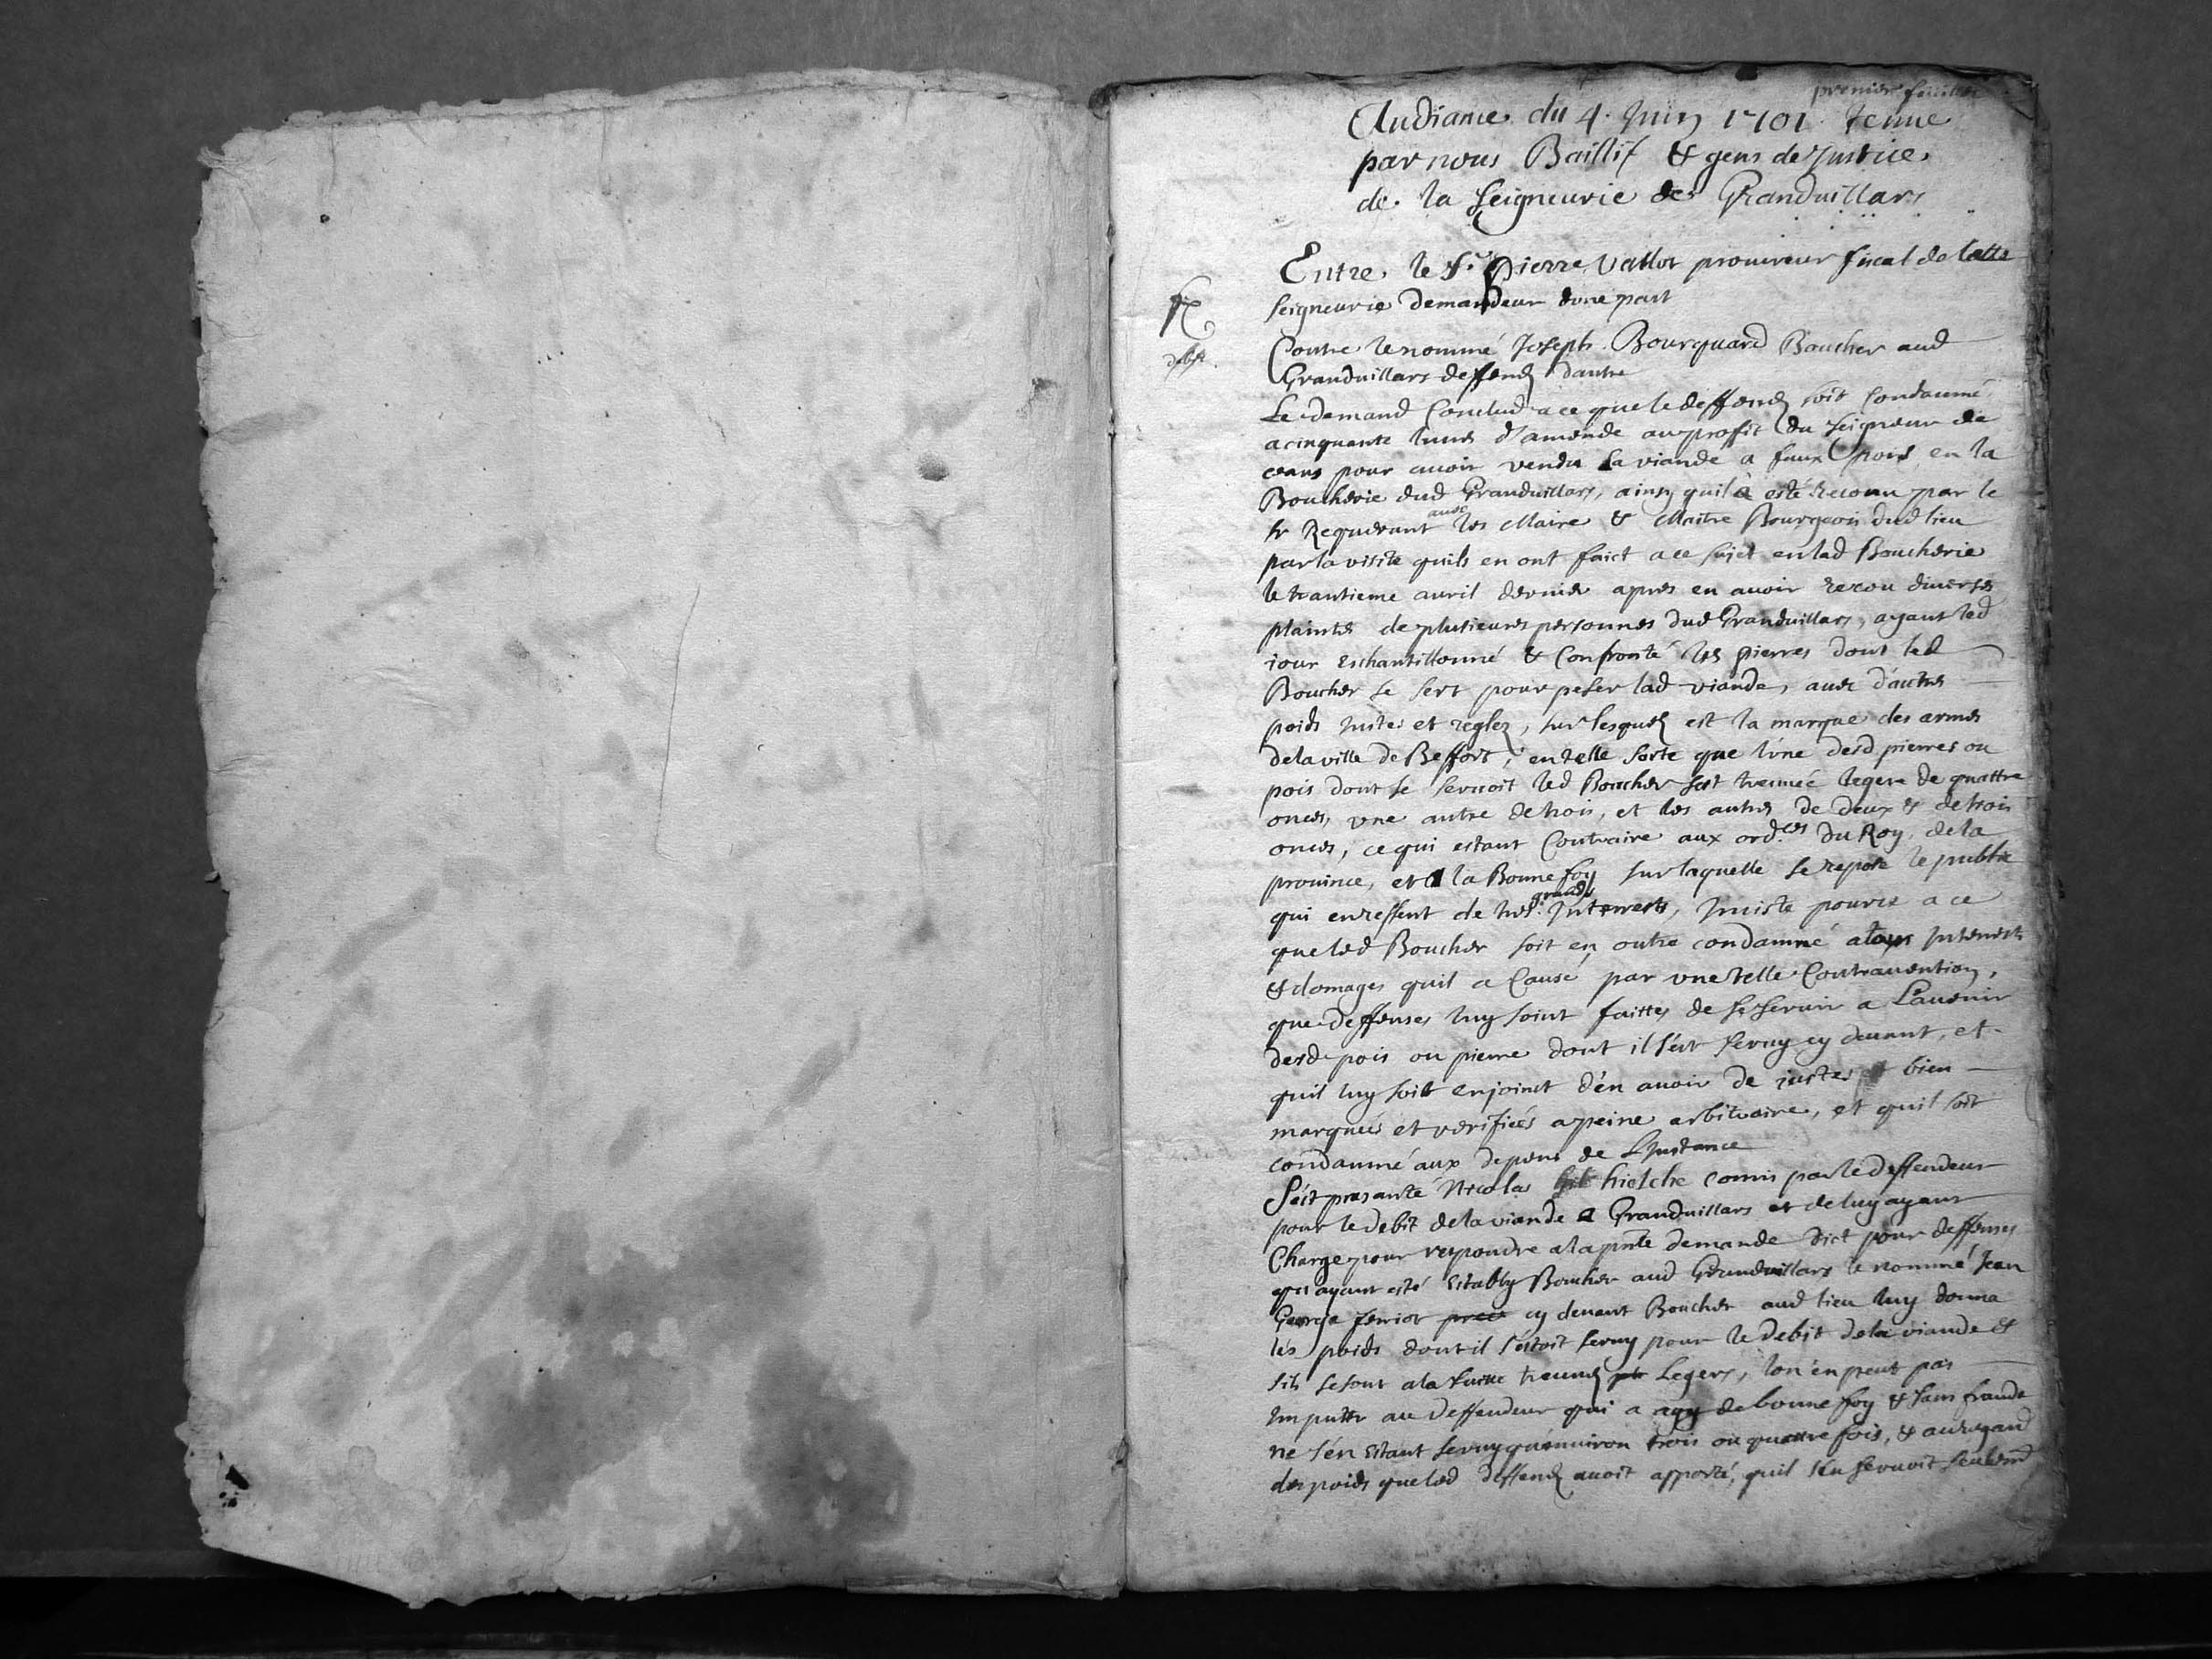 premier feuillet
Audiance du 4. Juin 1701. tenue
par nous Baillif & gens de Justice
de la Seigneurie de Granduillars
Entre le Sr. Pierre Vallot procureur fiscal de cette
seigneurie demandeur dune part
Contre le nommé Joseph Bourquard Boucher aud
Granduillars deffend dautre
Le demand Conclud a ce que le deffend soit Condamné
a cinquante liures d'amende au profit du seigneur de
ceans pour auoir vendu la viande a faux pois en la
Boucherie dud Granduillars, ainsy quil a esté reconu par le
sr Requerant auec les Maire & Maitre Bourgeois dud lieu
par la visite quils en ont faict a ce sujet en lad Boucherie
le trantieme auril dernier apres en auoir receu diuerses
plaintes de plusieures personnes dud Granduillars, ayant led
jour eschantillonné & Confronté les pierres dont led
Boucher se sert pour peser lad viande, auec d'autres
poids justes et reglez, sur lesquelz est la marque des armes
de la ville de Beffort, en telle sorte que l'une desd pierres ou
pois dont se seruoit led Boucher sest treuuée legere de quattre
onces, une autre de trois, et les autres de deux & de trois
onces, ce qui estant Contraire aux ord.ces du Roy, de la
prouince, et a la Bonne foy sur laquelle se repose le public
qui en ressent de tres grands Interrests, Insiste pource a ce
que led Boucher soit en outre condamné a tous Interests
& domages quil a Causé par une telle Contrauention,
que deffenses luy soint faittes de se seruir a L'auenir
desd pois ou pierre dont il s'est seruy cy deuant, et
quil luy soit enjoinct d'en auoir de justes et bien
marquées et verifiées a peine arbitraire, et quil soit
condamné aux depens de L'Instance
S'est presanté Nicolas hielche comis par le deffendeur
pour le debit de la viande a Granduillars et de luy ayant
Charge pour respondre a la pnte demande dict pour deffenses
qu'ayant esté Estably Boucher aud Granduillars le nommé Jean
George feriot cy deuant Boucher aud lieu luy donna
les poids dont il s'estoit seruy pour le debit de la viande &
sils se sont a la suitte treuuez Legers, lon en peut pas
Imputer au deffendeur qui a agy de bonne foy & sans fraude
ne s'en Estant seruy qu'enuiron trois ou quattre fois, & au regard
des poids que led deffend auoit apporté, quil s'en seruoit seulemt